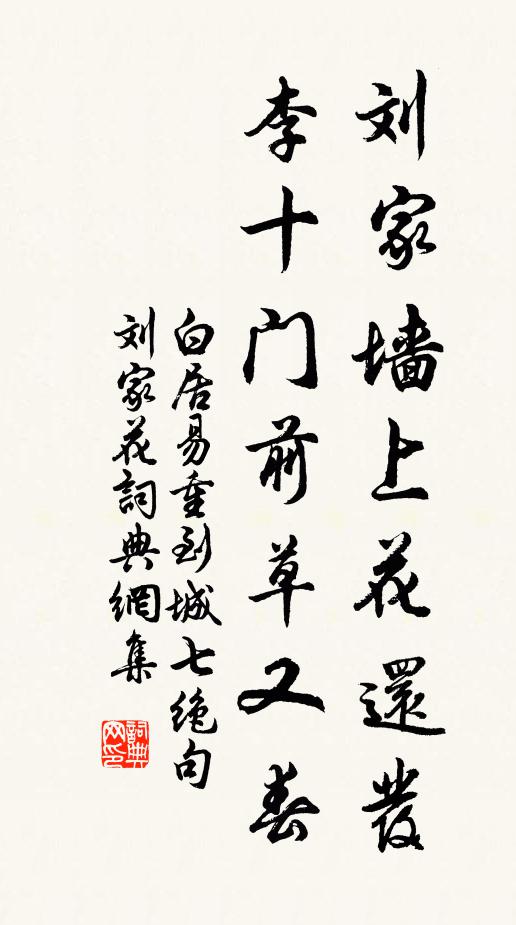 刘家墙上花還發
李十门前草又春
白居易重到城七绝句
刘家花詞典網集
詞典网印